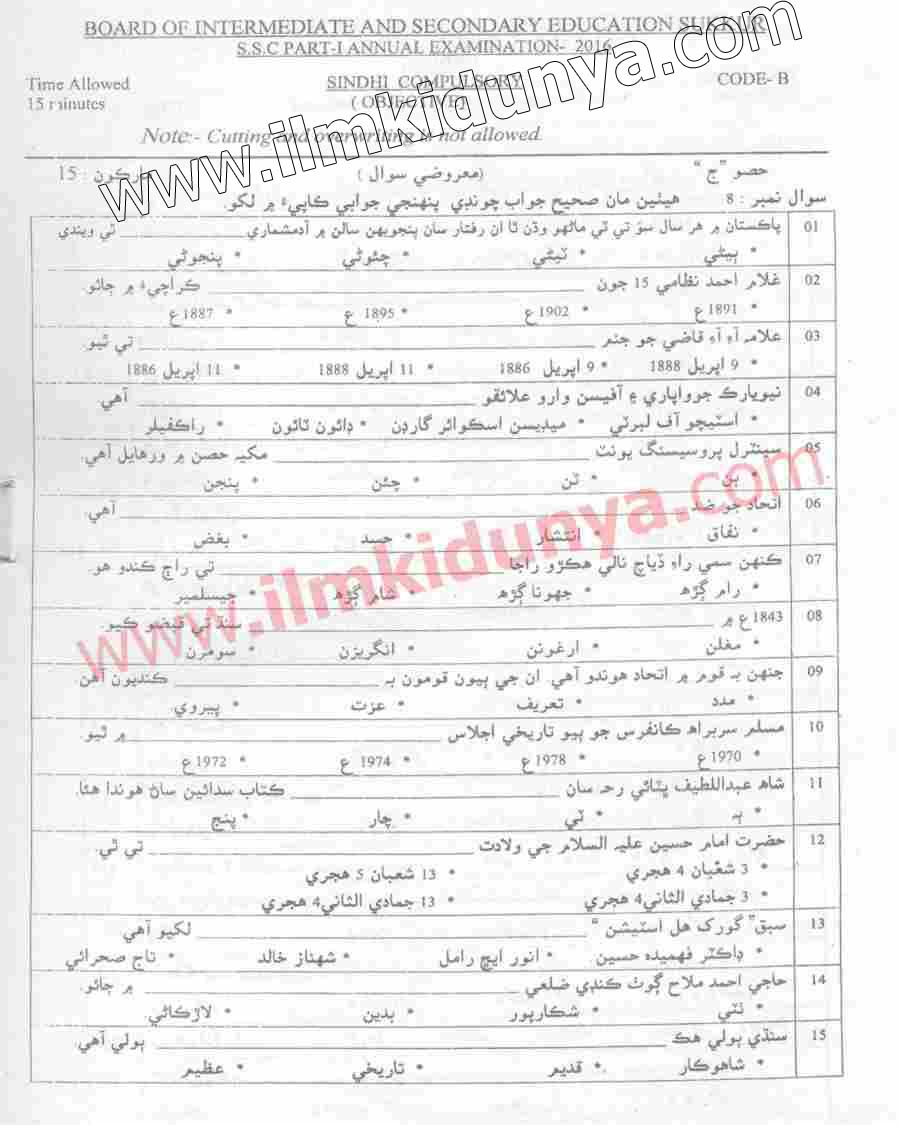 BOARD OF INTERMEDIATE AND SECONDARY EDUCATION SUKKUR
S.S.C PART-I ANNUAL EXAMINATION- 2016
Time Allowed SINDHI COMPULSORY CODE- B
15 minutes (OBJECTIVE)
Note:- Cutting and overwriting is not allowed.
حصو ”ج“ (معروضي سوال) مارڪون : 15
سوال نمبر : 8 هيٺين مان صحيح جواب چونڊي پنهنجي جوابي ڪاپيءَ ۾ لکو.
01 پاڪستان ۾ هر سال سؤ تي ٽي ماڻهو وڌن ٿا ان رفتار سان پنجويهن سالن ۾ آدمشماري ____ ٿي ويندي
* ٻيڻي * ٽيڻي * چئوڻي * پنجوڻي
02 غلام احمد نظامي 15 جون ____ ڪراچيءَ ۾ ڄائو.
* 1891ع * 1902ع * 1895ع * 1887ع
03 علامه آءِ آءِ قاضي جو جنم ____ تي ٿيو.
* 9 اپريل 1888 * 9 اپريل 1886 * 11 اپريل 1888 * 11 اپريل 1886
04 نيويارڪ جو واپاري ۽ آفيسن وارو علائقو ____ آهي.
* اسٽيچو آف لبرٽي * ميڊيسن اسڪوائر گارڊن * ڊائون ٽائون * راڪفيلر
05 سينٽرل پروسيسنگ يونٽ ____ مکيه حصن ۾ ورهايل آهي.
* ٻن * ٽن * چئن * پنجن
06 اتحاد جو ضد ____ آهي.
* نفاق * انتشار * حسد * بغض
07 ڪنهن سمي راءِ ڏياچ نالي هڪڙو راجا ____ تي راڄ ڪندو هو.
* رام ڳڙهه * جهونا ڳڙهه * شام ڳڙهه * جيسلمير
08 1843ع ۾ ____ سنڌ تي قبضو ڪيو.
* مغلن * ارغونن * انگريزن * سومرن
09 جنهن به قوم ۾ اتحاد هوندو آهي. ان جي ٻيون قومون به ____ ڪنديون آهن
* مدد * تعريف * عزت * پيروي
10 مسلم سربراهه ڪانفرس جو ٻيو تاريخي اجلاس ____ ۾ ٿيو.
* 1970ع * 1978ع * 1974ع * 1972ع
11 شاهه عبداللطيف ڀٽائي رحه سان ____ ڪتاب سدائين ساڻ هوندا هئا.
* ٻه * ٽي * چار * پنج
12 حضرت امام حسين عليه السلام جي ولادت ____ تي ٿي.
* 3 شعبان 4 هجري * 13 شعبان 5 هجري
* 3 جمادي الثاني4 هجري * 13 جمادي الثاني4 هجري
13 سبق” گورک هل اسٽيشن “ ____ لکيو آهي
* ڊاڪٽر فهميده حسين * انور ايڇ رامل * شهناز خالد * تاج صحرائي
14 حاجي احمد ملاح ڳوٺ ڪنڊي ضلعي ____ ۾ ڄائو.
* ٺٽي * شڪارپور * بدين * لاڙڪاڻي
15 سنڌي ٻولي هڪ ____ ٻولي آهي.
* شاهوڪار * قديم * تاريخي * عظيم
www.ilmkidunya.com
www.ilmkidunya.com